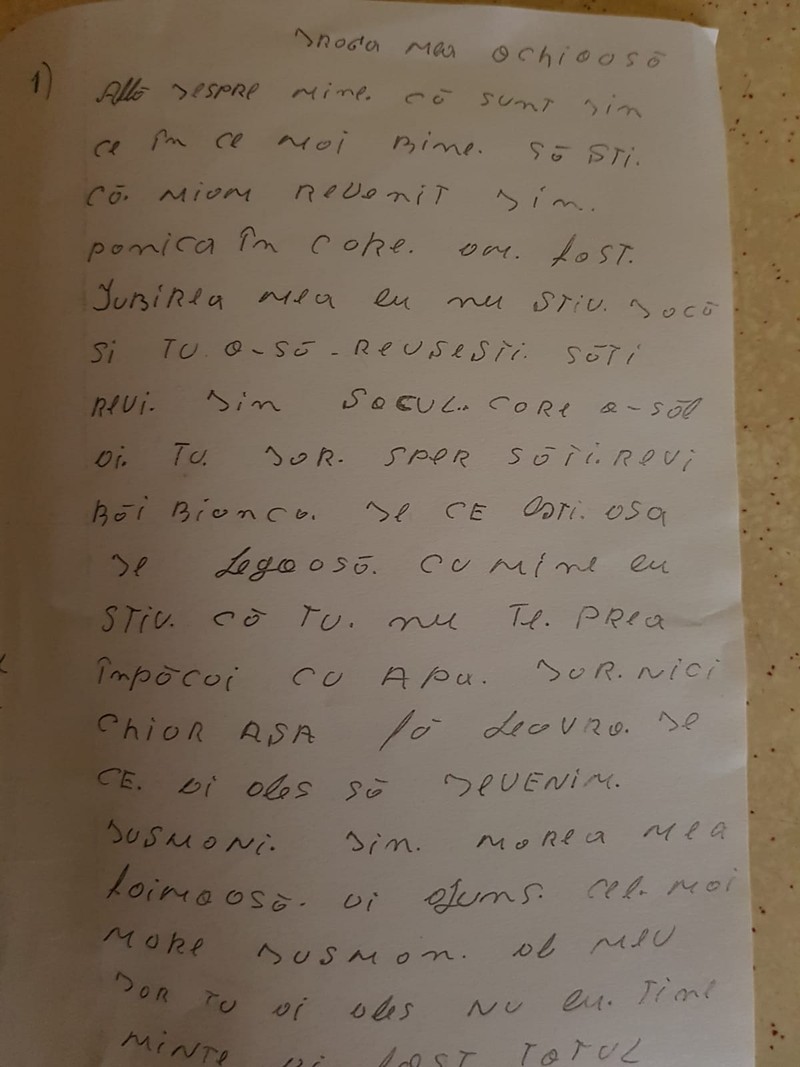 Droga mea ochioosă
1) Află despre mine. că sunt din
ce în ce moi bine. să sti.
că. miom revenit din.
ponica în core. om. fost.
Iubirea mea eu nu stiu. docă
si tu. o-să-reusesti. săti
revi. din socul. core o-săl
oi. tu. dor. sper săti. revi
băi bionco. de ce esti. osa
de fegoosă. cu mine eu
stiu. că tu. nu te. prea
împăcoi cu apa. dor. nici
chior asa fă leovro. de
ce. oi oles să devenim.
dusmoni. din. morea mea
foimoosă. oi ojuns. cel. moi
more dusmon. ol meu
dor tu oi oles nu eu. tine
minte oi fost totul